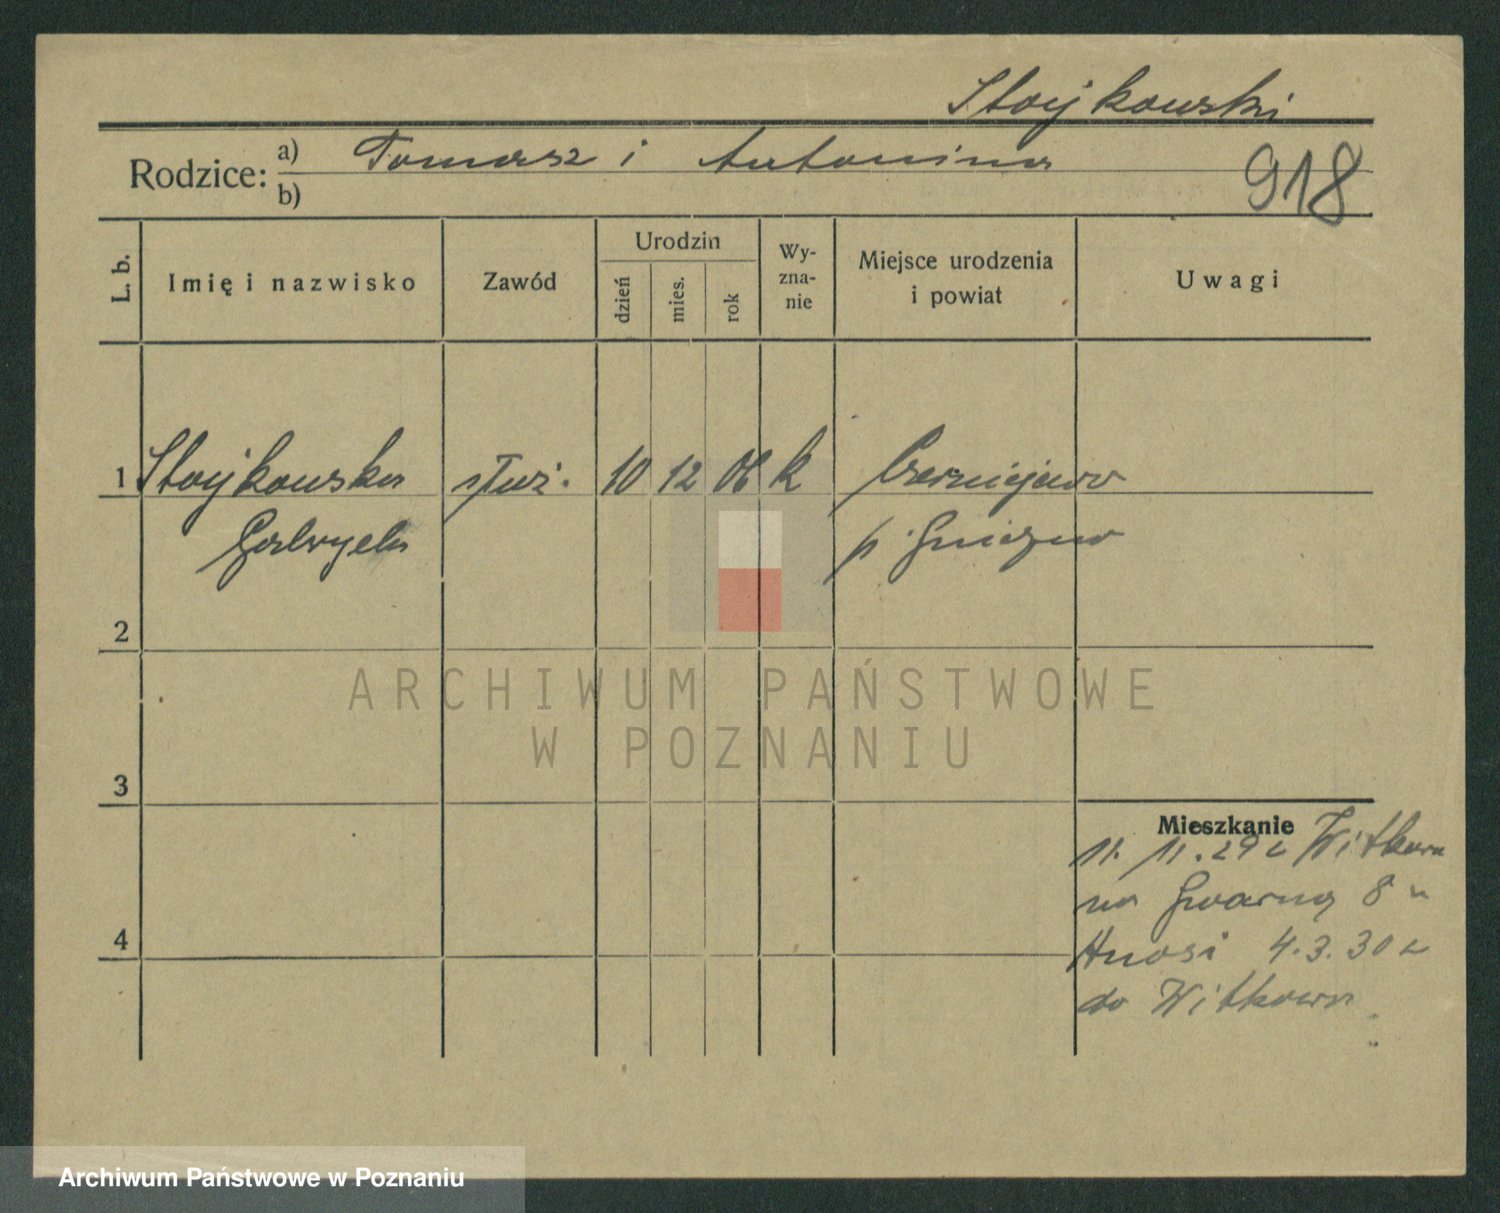 Stojkowski
Rodzice: a) Tomasz i Antonina
b)
918
L. b.
Imię i nazwisko
Zawód
Urodzin
dzień
mies.
rok
Wy-
zna-
nie
Miejsce urodzenia
i powiat
Uwagi
1 Stojkowska służ. 10 12 06 k Czerniejewo
Gabryela p Gniezno
2
3
4
Mieszkanie
11. 11. 29 z Witkowa
na Gwarną 8
4.3.30
do Witkowa
ARCHIWUM PAŃSTWOWE
W POZNANIU
Archiwum Państwowe w Poznaniu